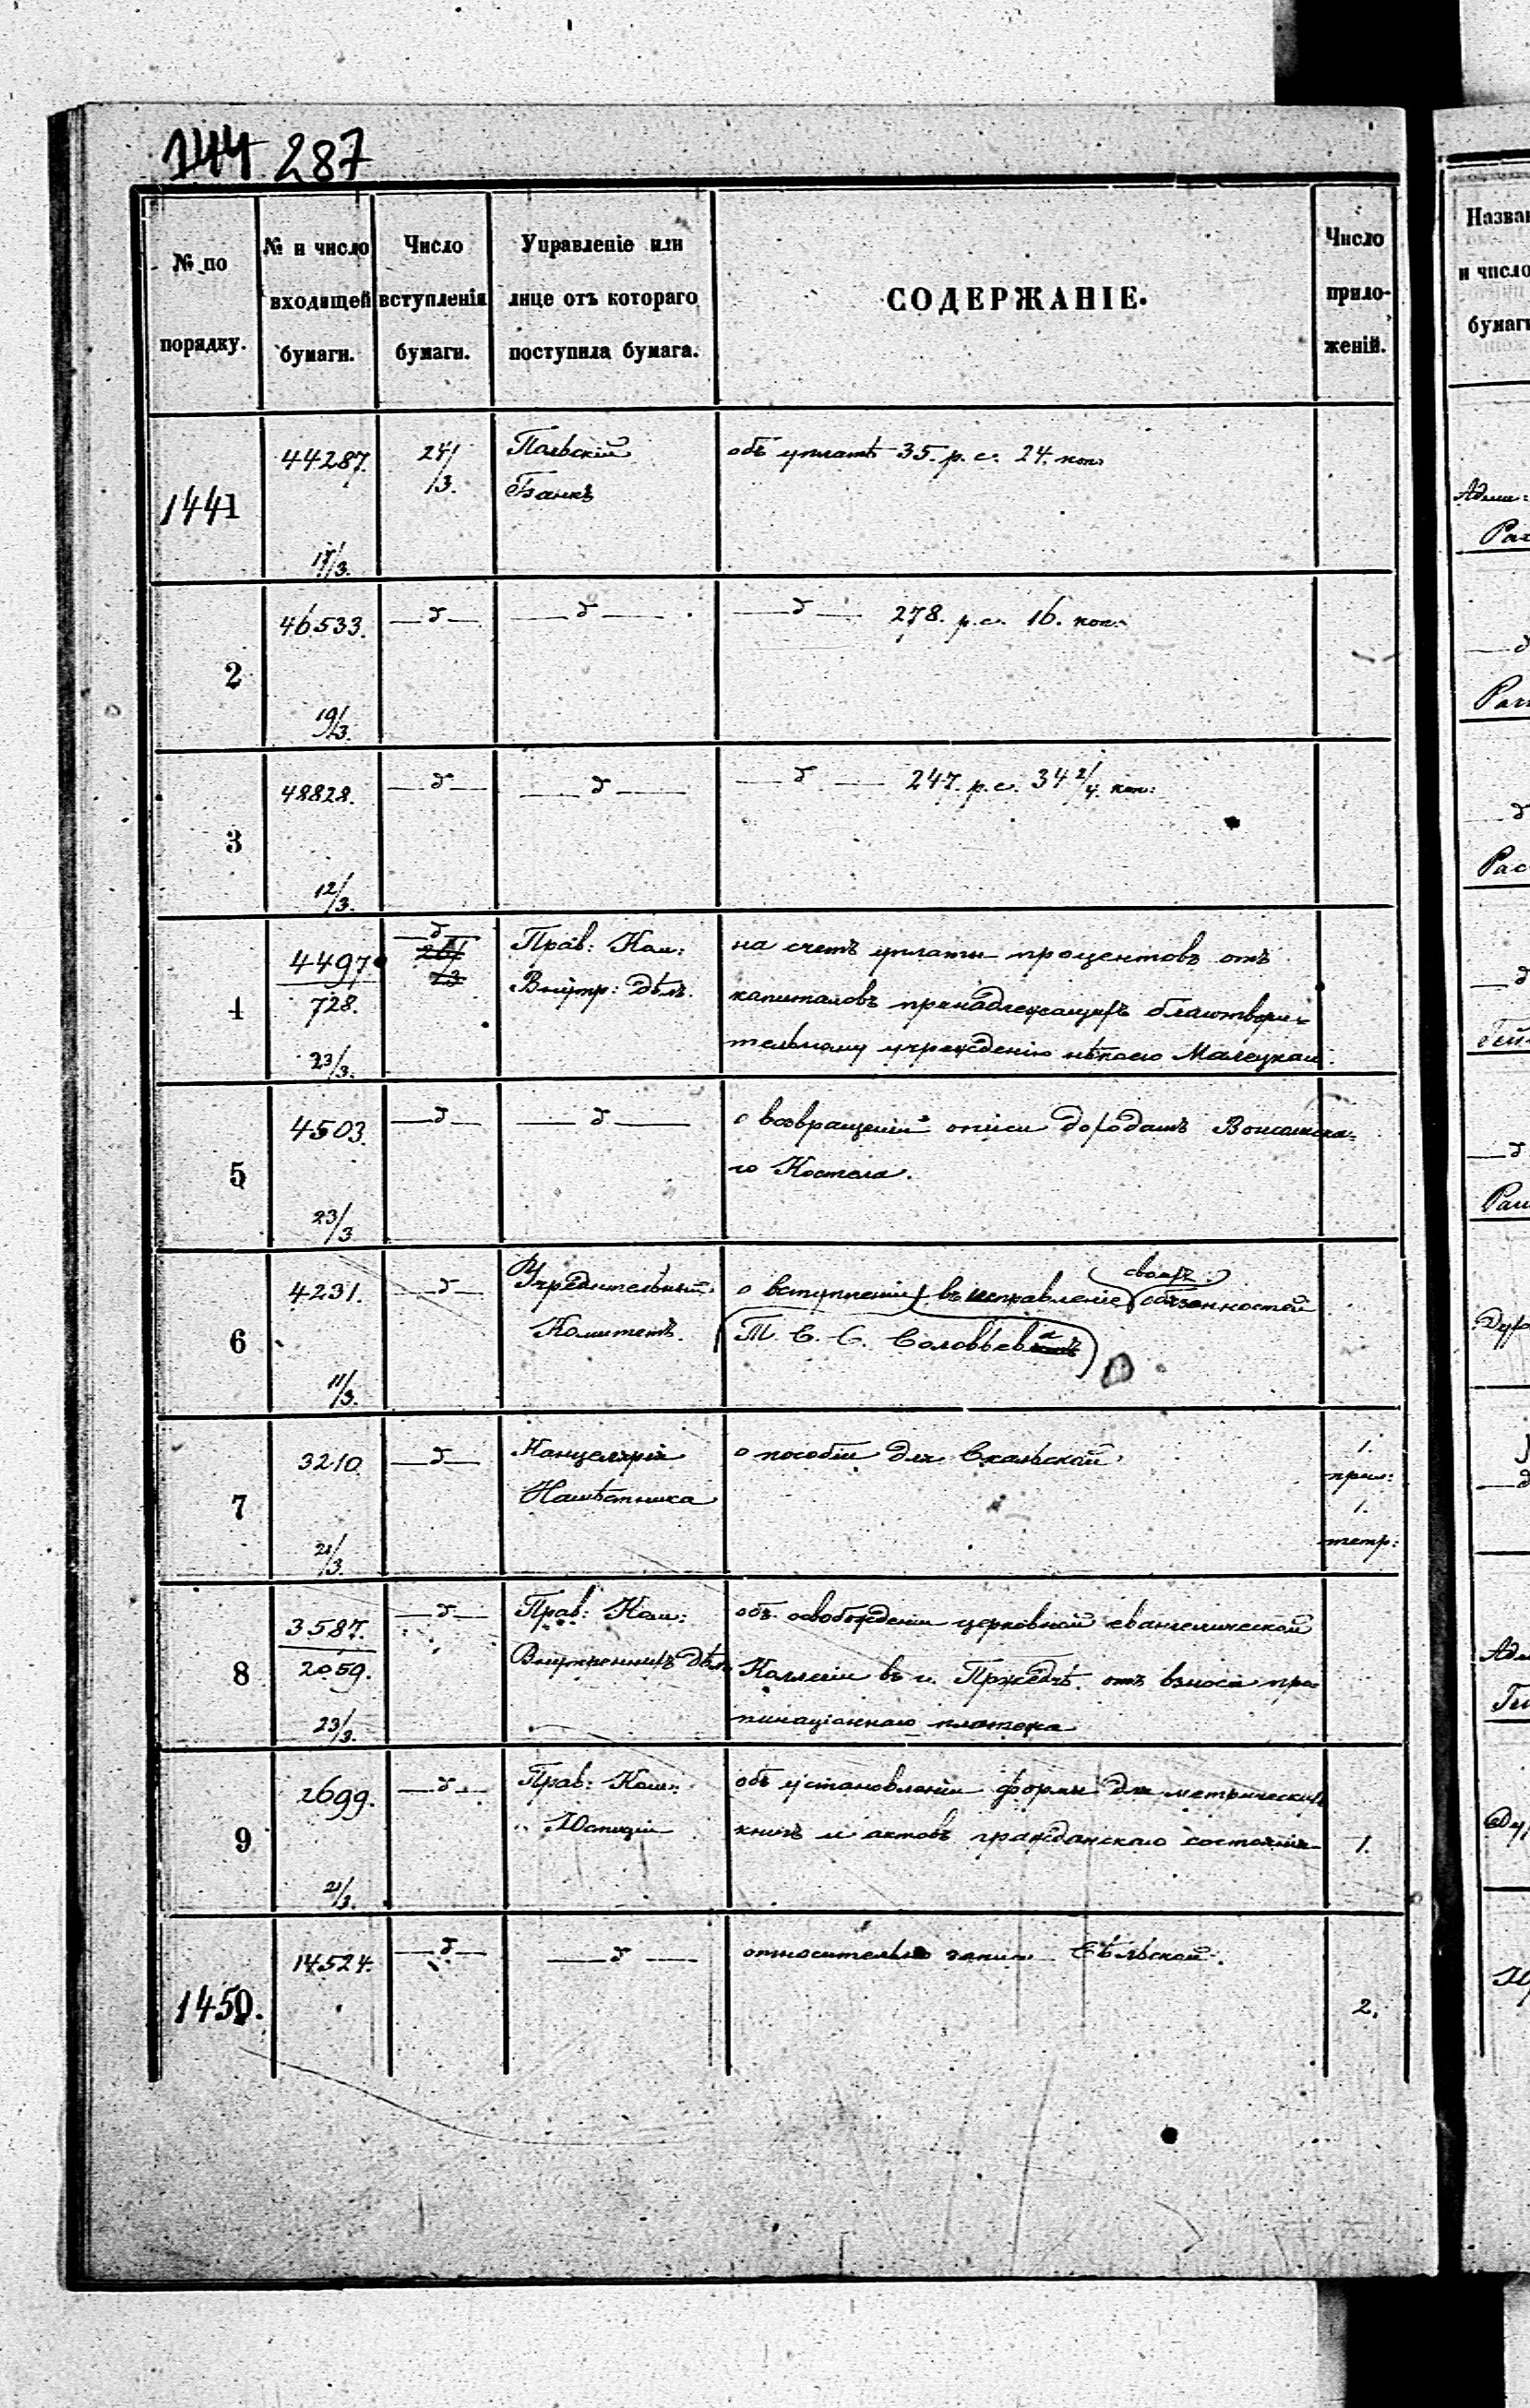 144 287
№ по порядку.
№ и число входящей бумаги.
Число вступленія бумаги.
Управленіе или лице отъ котораго поступила бумага.
СОДЕРЖАНІЕ.
Число прило- женій.
1441
44287.
17/3.
24/3.
Польскій
Банкъ
объ уплатѣ 35. р. с. 24. коп.
2
46533.
19/3.
—d—
—d—
—d— 278. р. с. 16. коп.
3
48828.
12/3.
—d—
—d—
—d— 247. р. с. 34 2/4. коп:
4
4497
728.
23/3.
—d—
Прав: Ком:
Внутр: Дѣлъ.
на счетъ уплаты процентовъ отъ
капиталовъ принадлежащихъ благотвори-
тельному учрежденію нѣкоего
5
4503.
23/3
—d—
—d—
о возвращеніи описи
го Костела.
6
4231.
11/3.
—d—
Учредительный
Комитетъ.
своихъ
о вступленіи въ исправленіе обязанностей
Т. С. С. Соловьева
7
3210.
21/3.
—d—
Канцелярія
Намѣстника
о пособіи для Скальской
1.
прил:
1.
тетр:
8
3587.
2059.
23/3.
—d—
Прав: Ком:
Внутреннихъ Дѣлъ
объ освобожденіи церковной евангелической
Коллегіи въ г. Пржедечѣ отъ взноса про-
пинаціоннаго платежа
9
2699.
21/3.
—d—
Прав: Ком:
Юстиціи
объ установленіи формы для метрическихъ
книгъ и актовъ гражданскаго состоянія
1.
1450.
14524.
—d—
—d—
относительно записи Бѣльской.
2.